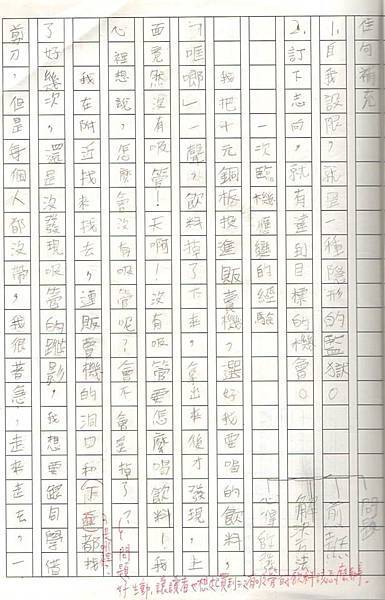 佳句補充
1.自我設限,就是一種隱形的監獄。
2.訂下志向,就有達到目標的機會。
一次臨機應變的經驗
我把十元銅板投進販賣機,選好我要唱的飲料,
「哐啷」一聲,飲料掉了下來,拿出來後才發現,上
面竟然沒有吸管!天啊!沒有吸管要怎麼唱飲料!我
心裡想說,怎麼會沒有吸管呢?會不會是掉了?
我在附近找來找去,連販賣機的洞口和下面都找
了好幾次,還是沒發現吸管的蹤影,我想要跟同學借
剪刀,但是每個人都沒帶,我很著急,走來走去,一
問題
前言
解決方法
心得啟發
問題
好生動,讓讀者也想起買到沒有吸管的飲料該怎麼辦。